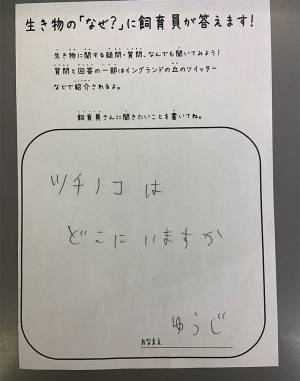 生き物の「なぜ?」に飼育員が答えます!
生き物に関する疑問・質問、なんでも聞いてみよう!
質問と回答の一部はイングランドの丘のツイッター
などで紹介されるよ。
飼育員さんに聞きたいことを書いてね。
ツチノコは
どこにいますか
おなまえ ゆうじ